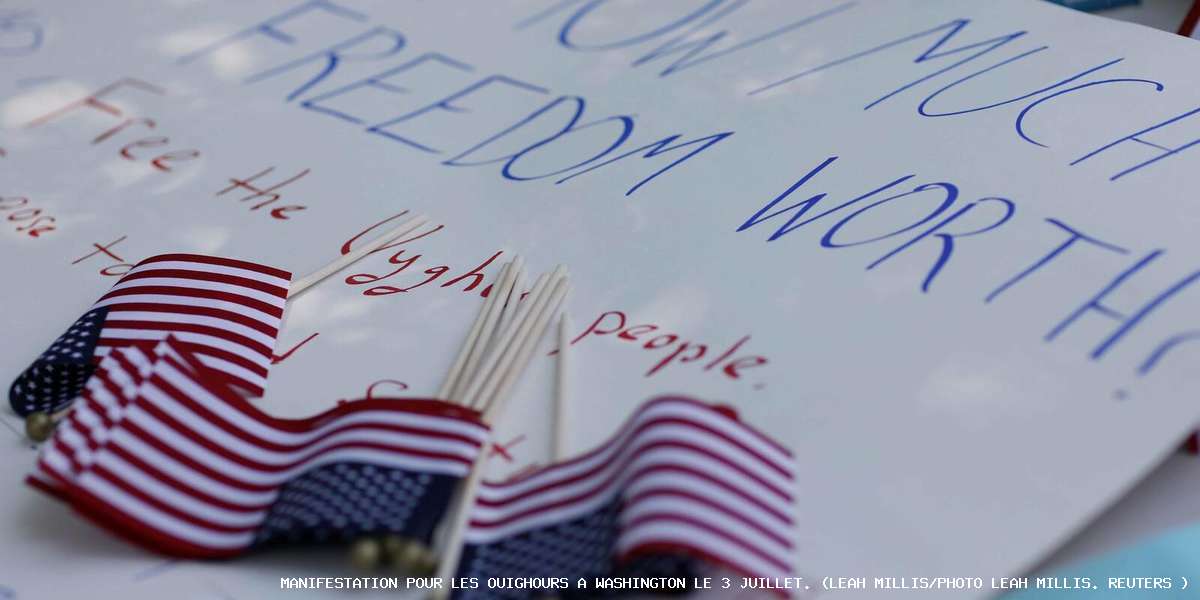 MUCH
FREEDOM WORTH?
Free the Uyghur people.
to
MANIFESTATION POUR LES OUIGHOURS A WASHINGTON LE 3 JUILLET. (LEAH MILLIS/PHOTO LEAH MILLIS. REUTERS )